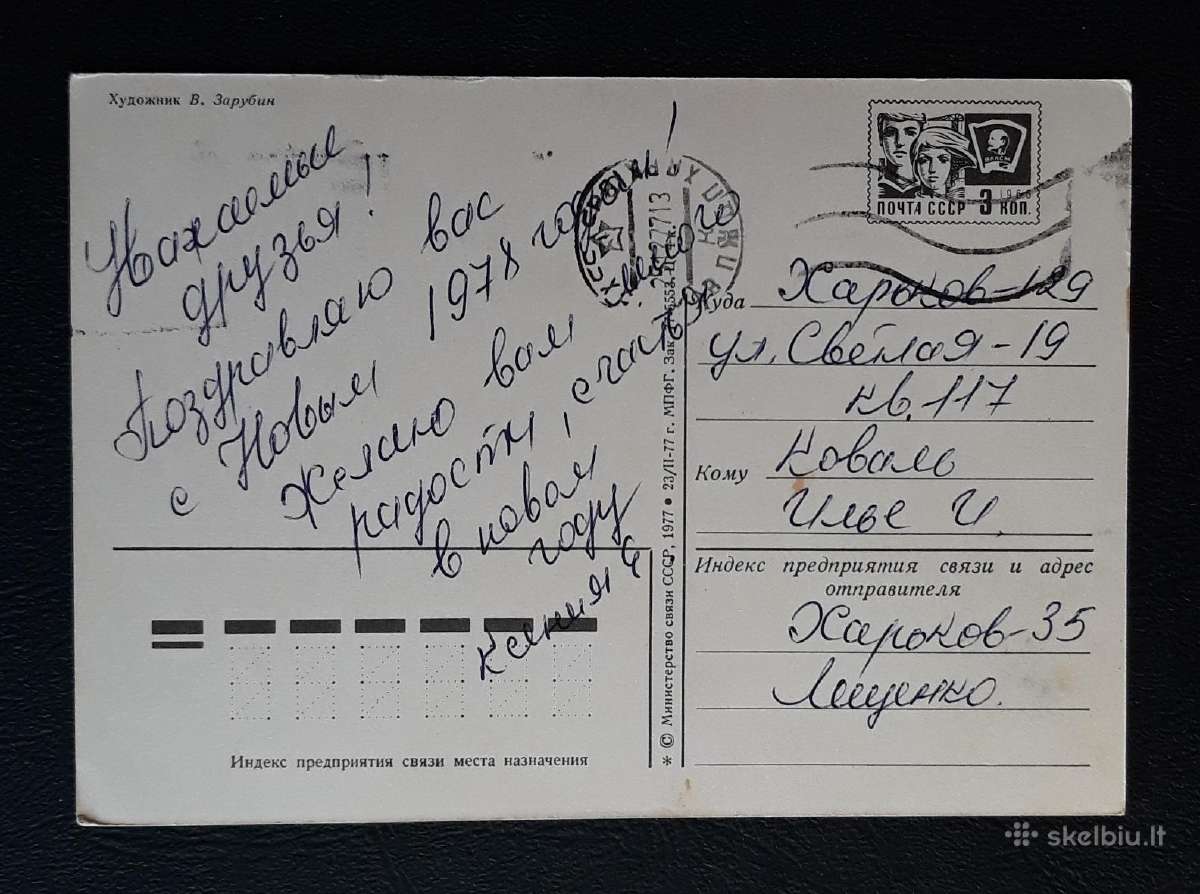 Художник В. Зарубин
Уважаемые
друзья!
Поздравляю вас
с Новым 1978 годом!
Желаю вам
радости, счастья
в новом
году
Ксения
ПОЧТА СССР 3 КОП.
ВЛКСМ
1966
Куда Харьков-129
ул. Светлая-19
кв. 117
Кому Коваль
Илье И.
Индекс предприятия связи и адрес
отправителя
Харьков-35
Лященко.
Индекс предприятия связи места назначения
* © Министерство связи СССР, 1977 • 23/II-77 г. МПФГ. Зак.
skelbiu.lt